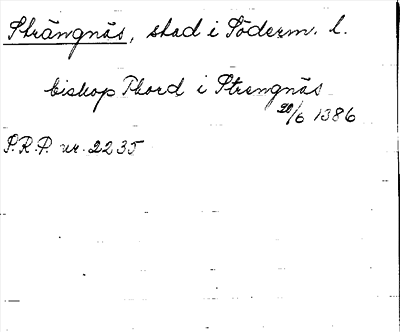 Strängnäs, stad i Söderm. l.
biskop Thord i Strengnäs
20/6 1386
S.R.P. nr. 2235